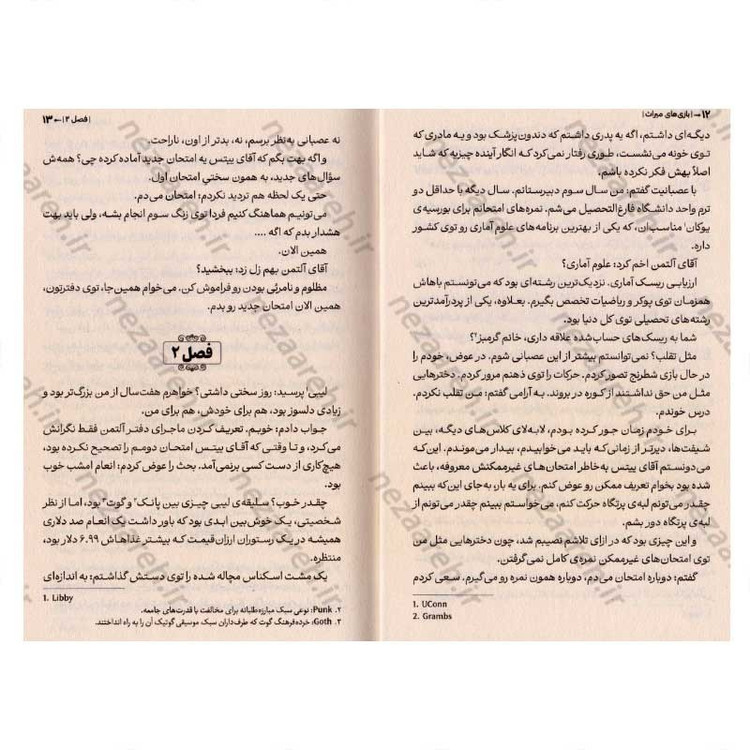 ۱۲ ← | بازی‌های میراث |
دیگه‌ای داشتم، اگه یه پدری داشتم که دندون‌پزشک بود و یه مادری که
توی خونه می‌نشست، طوری رفتار نمی‌کرد که انگار آینده چیزیه که شاید
اصلاً بهش فکر نکرده باشم.
با عصبانیت گفتم: من سال سوم دبیرستانم. سال دیگه با حداقل دو
ترم واحد دانشگاه فارغ‌التحصیل می‌شم. نمره‌های امتحانم برای بورسیه‌ی
یوکان۱ مناسب‌ان، که یکی از بهترین برنامه‌های علوم آماری رو توی کشور
داره.
آقای آلتمن اخم کرد: علوم آماری؟
ارزیابی ریسک آماری. نزدیک‌ترین رشته‌ای بود که می‌تونستم باهاش
همزمان توی پوکر و ریاضیات تخصص بگیرم. بعلاوه، یکی از پردرآمدترین
رشته‌های تحصیلی توی کل دنیا بود.
شما به ریسک‌های حساب‌شده علاقه داری، خانم گرمبز۲؟
مثل تقلب؟ نمی‌توانستم بیشتر از این عصبانی شوم. در عوض، خودم را
در حال بازی شطرنج تصور کردم. حرکات را توی ذهنم مرور کردم. دخترهایی
مثل من حق نداشتند از کوره در بروند. به آرامی گفتم: من تقلب نکردم.
درس خوندم.
برای خودم زمان جور کرده بودم، لابه‌لای کلاس‌های دیگه، بین
شیفت‌ها، دیرتر از زمانی که باید می‌خوابیدم، بیدار می‌موندم. این‌که
می‌دونستم آقای ییتس به‌خاطر امتحان‌های غیرممکنش معروفه، باعث
شده بود بخوام تعریف ممکن رو عوض کنم. برای یه بار، به‌جای این که ببینم
چقدر می‌تونم لبه‌ی پرتگاه حرکت کنم، می‌خواستم ببینم چقدر می‌تونم از
لبه‌ی پرتگاه دور بشم.
و این چیزی بود که در ازای تلاشم نصیبم شد، چون دخترهایی مثل من
توی امتحان‌های غیرممکن نمره‌ی کامل نمی‌گرفتن.
گفتم: دوباره امتحان می‌دم، دوباره همون نمره رو می‌گیرم. سعی کردم
1. UConn
2. Grambs
| فصل ۲ | ← ۱۳
نه عصبانی به‌نظر برسم، نه، بدتر از اون، ناراحت.
و اگه بهت بگم که آقای ییتس یه امتحان جدید آماده کرده چی؟ همه‌ش
سؤال‌های جدید، به همون سختیِ امتحان اول.
حتی یک لحظه هم تردید نکردم: امتحان می‌دم.
می‌تونیم هماهنگ کنیم فردا توی زنگ سوم انجام بشه، ولی باید بهت
هشدار بدم که اگه ....
همین الان.
آقای آلتمن بهم زل زد: ببخشید؟
مظلوم و نامرئی بودن رو فراموش کن. می‌خوام همین‌جا، توی دفترتون،
همین الان امتحان جدید رو بدم.
فصل ۲
لیبی۱ پرسید: روز سختی داشتی؟ خواهرم هفت‌سال از من بزرگ‌تر بود و
زیادی دلسوز بود، هم برای خودش، هم برای من.
جواب دادم: خوبم. تعریف کردن ماجرای دفتر آلتمن فقط نگرانش
می‌کرد، و تا وقتی که آقای ییتس امتحان دومم را تصحیح نکرده بود،
هیچ‌کاری از دست کسی برنمی‌آمد. بحث را عوض کردم: انعام امشب خوب
بود.
چقدر خوب؟ سلیقه‌ی لیبی چیزی بین پانک۲ و گوت۳ بود، اما از نظر
شخصیتی، یک خوش‌بین ابدی بود که باور داشت یک انعام صد دلاری
همیشه در یک رستوران ارزان‌قیمت که بیشتر غذاهاش ۶.۹۹ دلار بود،
منتظره.
یک مشت اسکناس مچاله شده را توی دستش گذاشتم: به اندازه‌ای
1. Libby
۲. Punk: نوعی سبک مبارزه‌طلبانه برای مخالفت با قدرت‌های جامعه.
۳. Goth: خرده‌فرهنگ گوت که طرف‌داران سبک موسیقی گوتیک آن را به راه انداختند.
nezaareh.ir